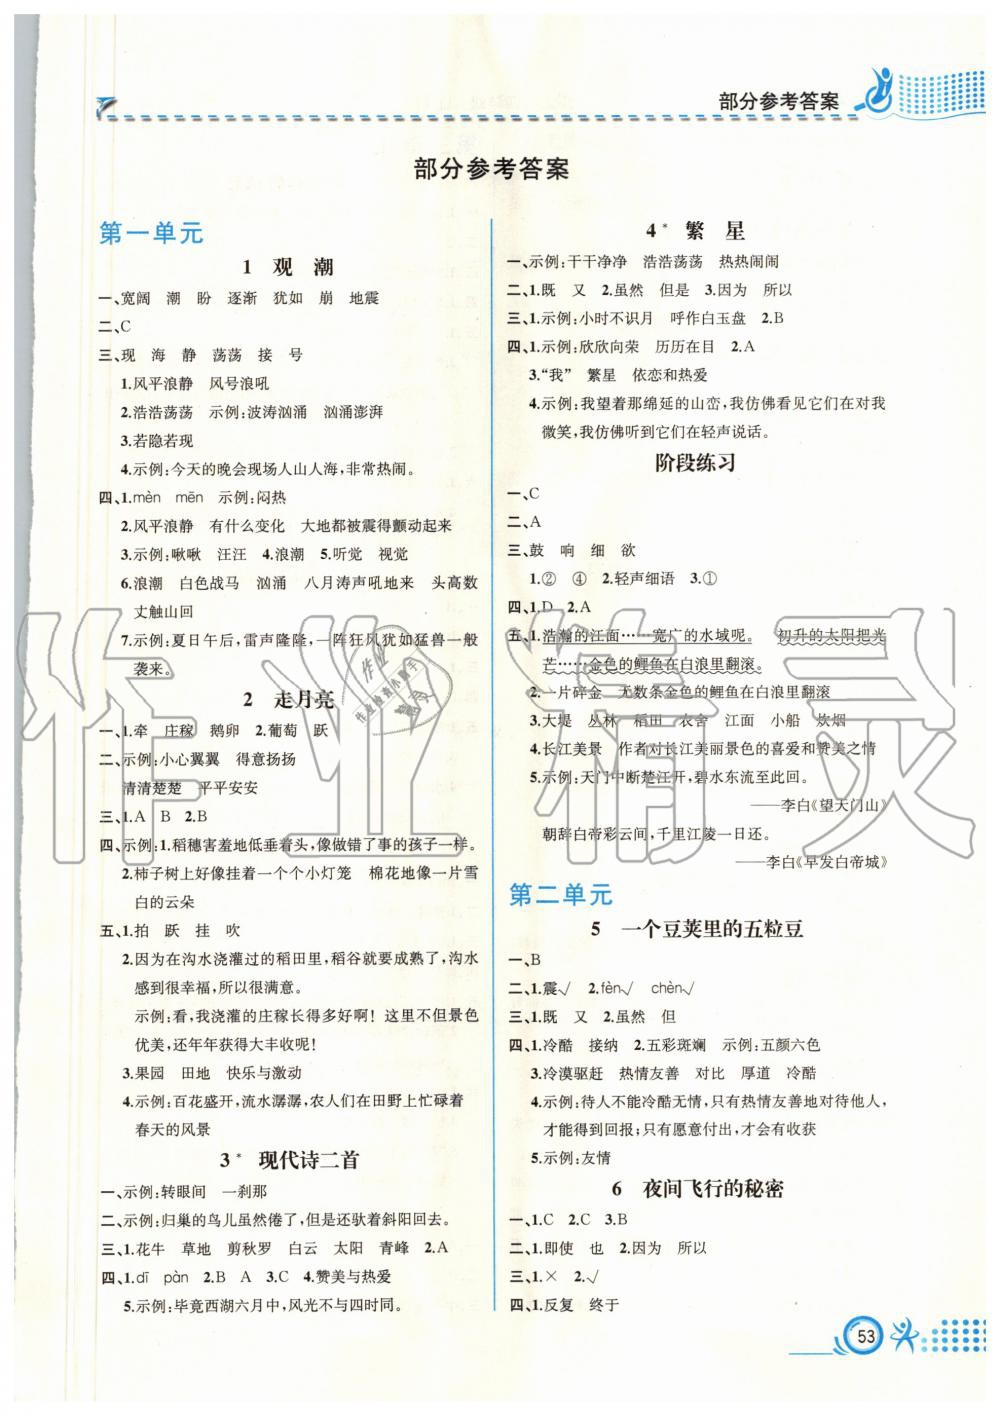 部分参考答案
部分参考答案
第一单元
1 观 潮
一、宽阔 潮 盼 逐渐 犹如 崩 地震
二、C
三、现 海 静 荡荡 接 号
1.风平浪静 风号浪吼
2.浩浩荡荡 示例:波涛汹涌 汹涌澎湃
3.若隐若现
4.示例:今天的晚会现场人山人海,非常热闹。
四、1.mèn mēn 示例:闷热
2.风平浪静 有什么变化 大地都被震得颤动起来
3.示例:啾啾 汪汪 4.浪潮 5.听觉 视觉
6.浪潮 白色战马 汹涌 八月涛声吼地来 头高数
丈触山回
7.示例:夏日午后,雷声隆隆,一阵狂风犹如猛兽一般
袭来。
2 走月亮
一、1.牵 庄稼 鹅卵 2.葡萄 跃
二、示例:小心翼翼 得意扬扬
清清楚楚 平平安安
三、1.A B 2.B
四、示例:1.稻穗害羞地低垂着头,像做错了事的孩子一样。
2.柿子树上好像挂着一个个小灯笼 棉花地像一片雪
白的云朵
五、1.拍 跃 挂 吹
2.因为在沟水浇灌过的稻田里,稻谷就要成熟了,沟水
感到很幸福,所以很满意。
示例:看,我浇灌的庄稼长得多好啊! 这里不但景色
优美,还年年获得大丰收呢!
3.果园 田地 快乐与激动
4.示例:百花盛开,流水潺潺,农人们在田野上忙碌着
春天的风景
3* 现代诗二首
一、示例:转眼间 一刹那
二、示例:归巢的鸟儿虽然倦了,但是还驮着斜阳回去。
三、1.花牛 草地 剪秋罗 白云 太阳 青峰 2.A
四、1.dī pàn 2.B A 3.C 4.赞美与热爱
5.示例:毕竟西湖六月中,风光不与四时同。
4* 繁 星
一、示例:干干净净 浩浩荡荡 热热闹闹
二、1.既 又 2.虽然 但是 3.因为 所以
三、1.示例:小时不识月 呼作白玉盘 2.B
四、1.示例:欣欣向荣 历历在目 2.A
3.“我” 繁星 依恋和热爱
4.示例:我望着那绵延的山峦,我仿佛看见它们在对我
微笑,我仿佛听到它们在轻声说话。
阶段练习
一、C
二、A
三、鼓 响 细 欲
1.② ④ 2.轻声细语 3.①
四、1.D 2.A
五、1.浩瀚的江面……宽广的水域呢。 初升的太阳把光
芒……金色的鲤鱼在白浪里翻滚。
2.一片碎金 无数条金色的鲤鱼在白浪里翻滚
3.大堤 丛林 稻田 农舍 江面 小船 炊烟
4.长江美景 作者对长江美丽景色的喜爱和赞美之情
5.示例:天门中断楚江开,碧水东流至此回。
——李白《望天门山》
朝辞白帝彩云间,千里江陵一日还。
——李白《早发白帝城》
第二单元
5 一个豆荚里的五粒豆
一、B
二、1.震√ 2.fèn√ chèn√
三、1.既 又 2.虽然 但
四、1.冷酷 接纳 2.五彩斑斓 示例:五颜六色
3.冷漠驱赶 热情友善 对比 厚道 冷酷
4.示例:待人不能冷酷无情,只有热情友善地对待他人,
才能得到回报;只有愿意付出,才会有收获
5.示例:友情
6 夜间飞行的秘密
一、1.C 2.C 3.B
二、1.即使 也 2.因为 所以
三、1.× 2.√
四、1.反复 终于
53
作业精灵